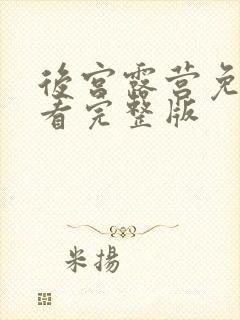 後宫露营免
看完整版
米揚